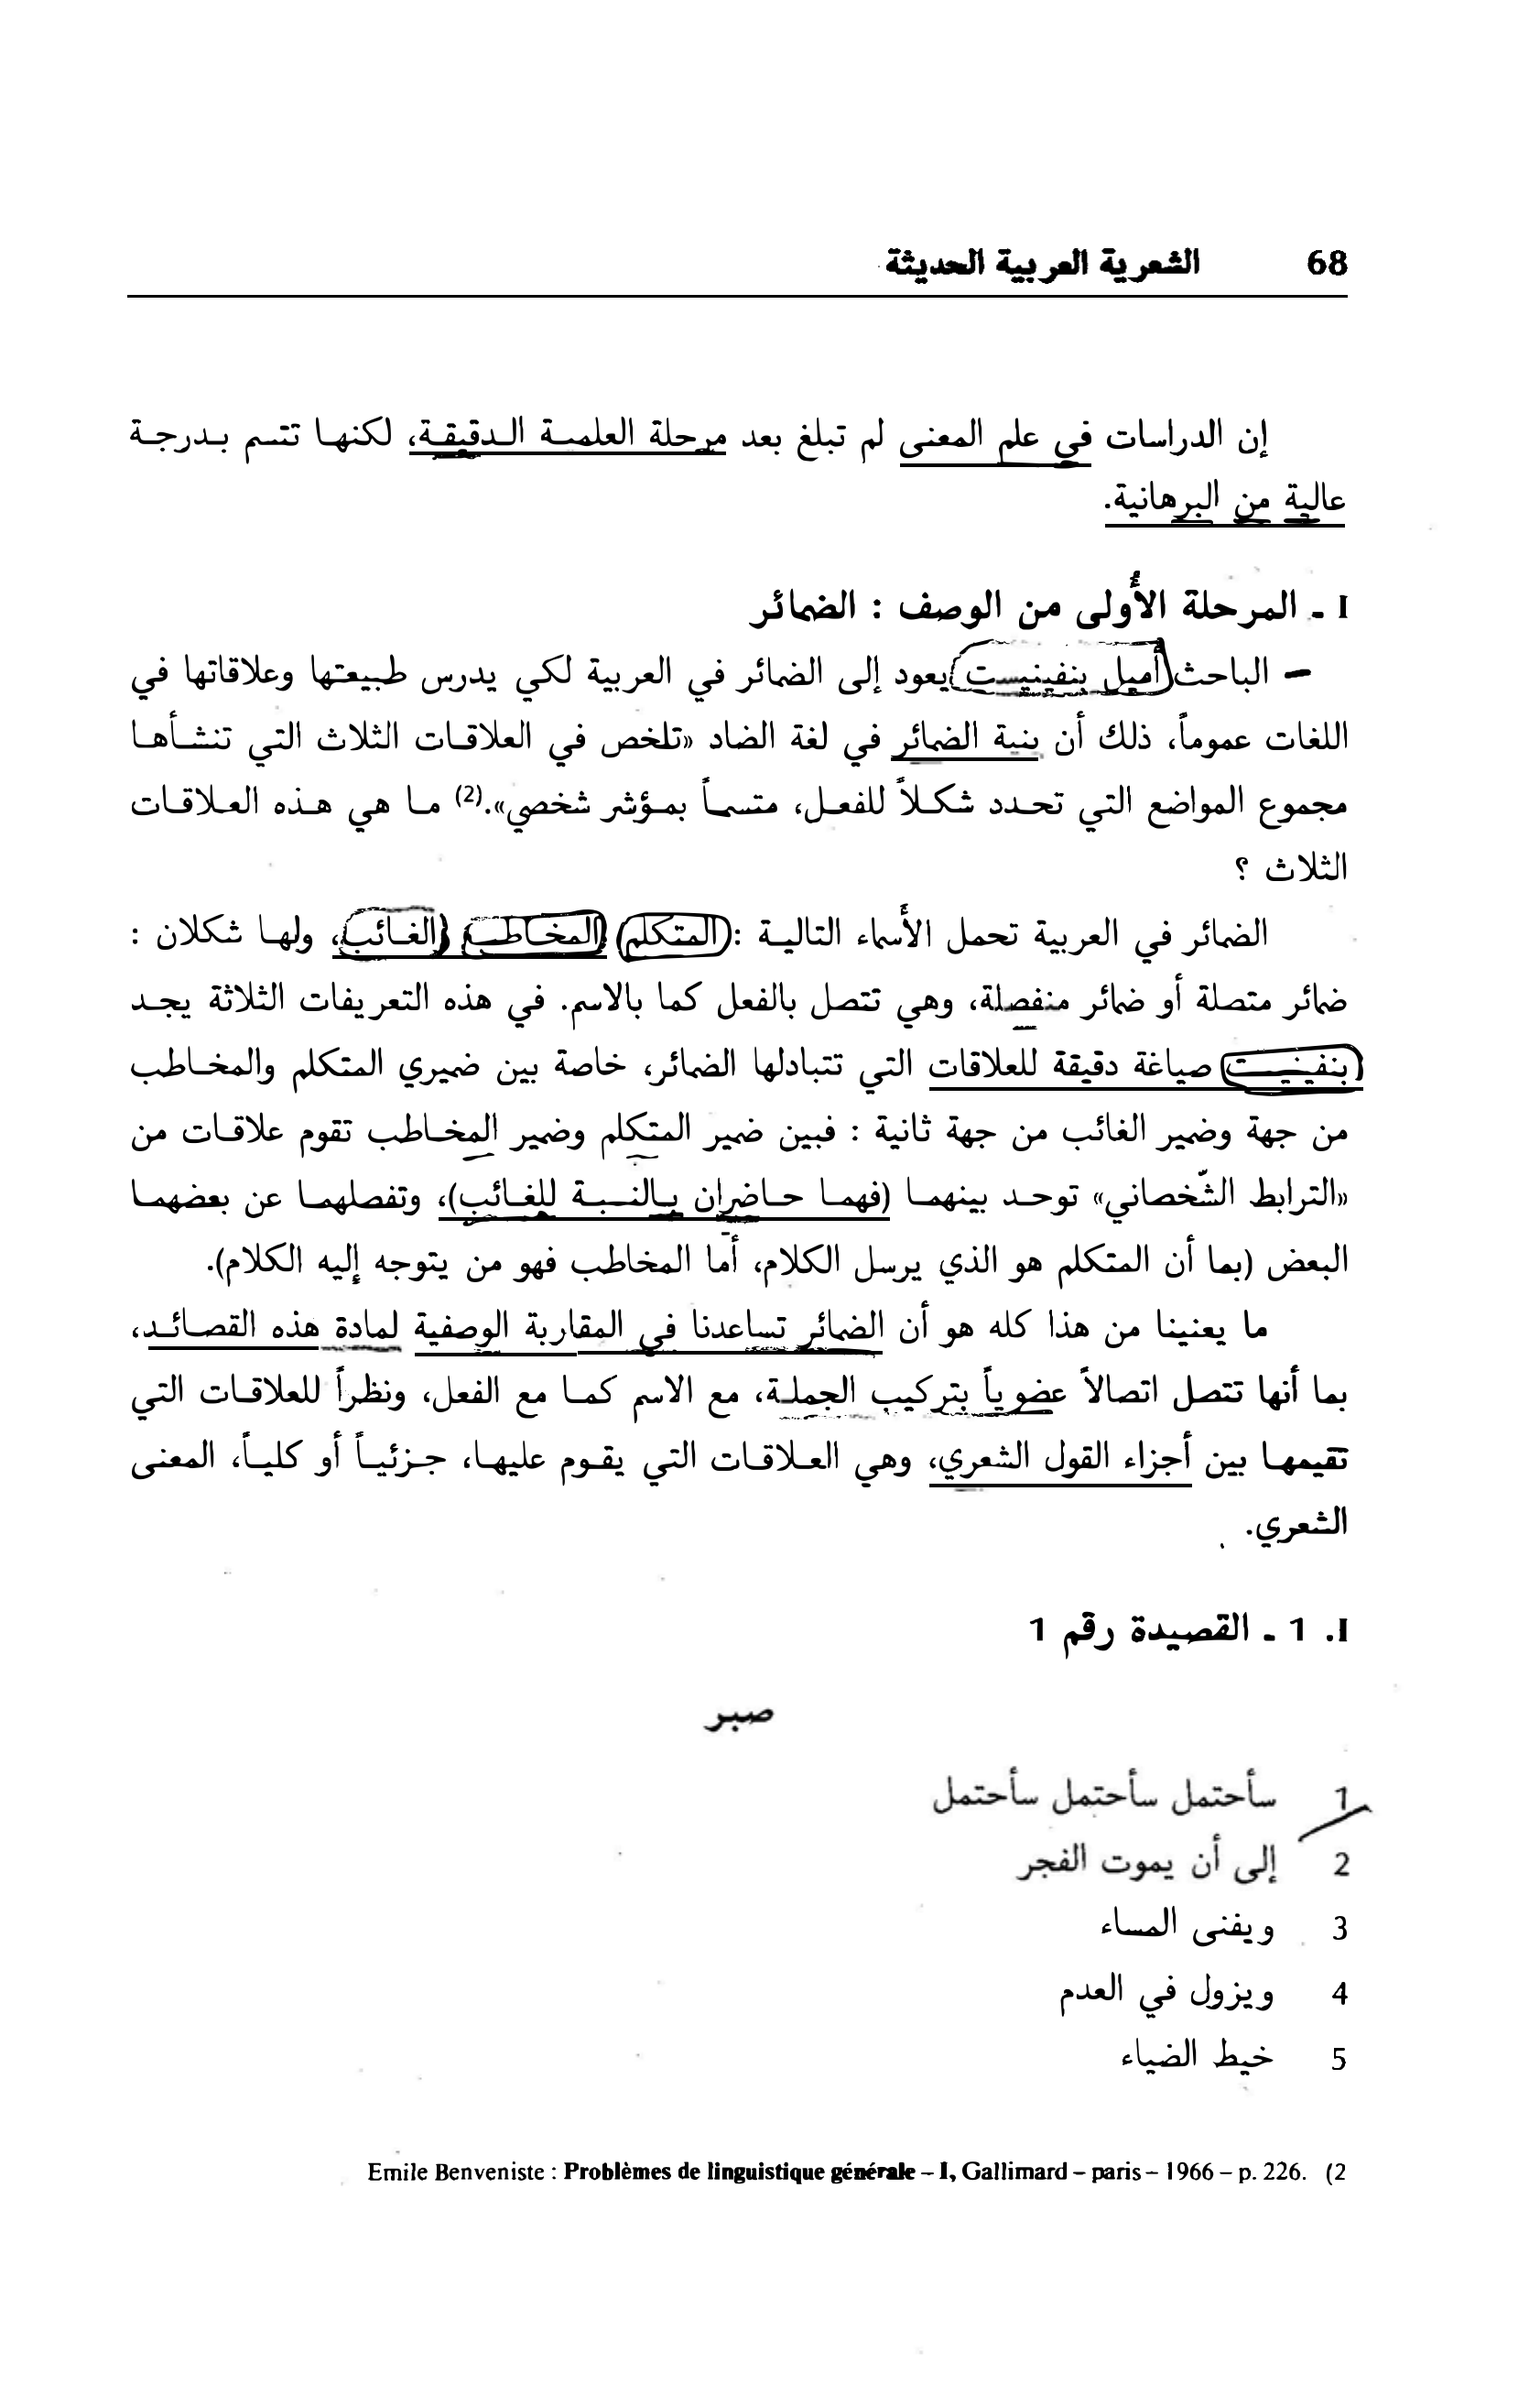 68 الشعرية العربية الحديثة
إن الدراسات في علم المعنى لم تبلغ بعد مرحلة العلمية الدقيقة، لكنها تتسم بدرجة
عالية من البرهانية.
I ـ المرحلة الأُولى من الوصف : الضمائر
– الباحث أميل بنفينيست يعود إلى الضمائر في العربية لكي يدرس طبيعتها وعلاقاتها في
اللغات عموماً، ذلك أن بنية الضمائر في لغة الضاد «تلخص في العلاقات الثلاث التي تنشأها
مجموع المواضع التي تحدد شكلاً للفعل، متسماً بمؤشر شخصي».(2) ما هي هذه العلاقات
الثلاث ؟
الضمائر في العربية تحمل الأسماء التالية : المتكلم المخاطب الغائب، ولها شكلان :
ضمائر متصلة أو ضمائر منفصلة، وهي تتصل بالفعل كما بالاسم. في هذه التعريفات الثلاثة يجد
بنفينيست صياغة دقيقة للعلاقات التي تتبادلها الضمائر، خاصة بين ضميري المتكلم والمخاطب
من جهة وضمير الغائب من جهة ثانية : فبين ضمير المتكلم وضمير المخاطب تقوم علاقات من
«الترابط الشّخصاني» توحد بينهما (فهما حاضران بالنسبة للغائب)، وتفصلهما عن بعضهما
البعض (بما أن المتكلم هو الذي يرسل الكلام، أما المخاطب فهو من يتوجه إليه الكلام).
ما يعنينا من هذا كله هو أن الضمائر تساعدنا في المقاربة الوصفية لمادة هذه القصائد،
بما أنها تتصل اتصالاً عضوياً بتركيب الجملة، مع الاسم كما مع الفعل، ونظراً للعلاقات التي
تقيمها بين أجزاء القول الشعري، وهي العلاقات التي يقوم عليها، جزئياً أو كلياً، المعنى
الشعري.
I. 1 ـ القصيدة رقم 1
صبر
1 سأحتمل سأحتمل سأحتمل
2 إلى أن يموت الفجر
3 ويفنى المساء
4 ويزول في العدم
5 خيط الضياء
Emile Benveniste : Problèmes de linguistique générale – I, Gallimard – paris – 1966 – p. 226. (2